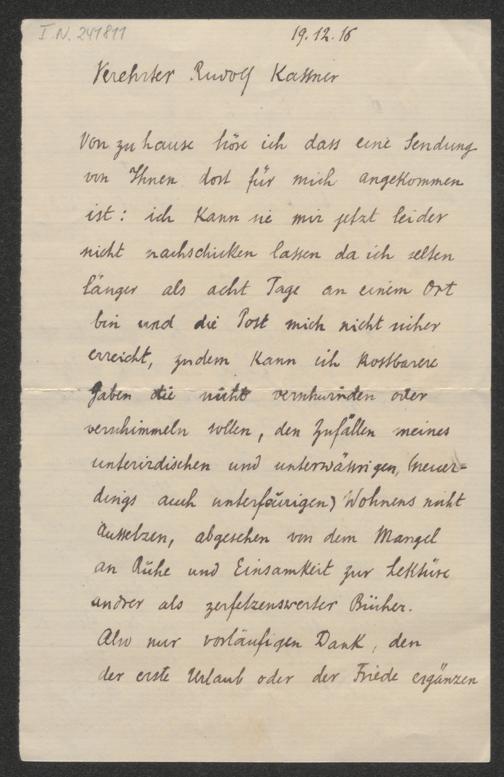 I.N. 241811
19.12.16
Verehrter Rudolf Kassner
Von zu hause höre ich dass eine Sendung
von Ihnen dort für mich angekommen
ist: ich kann sie mir jetzt leider
nicht nachschicken lassen da ich selten
länger als acht Tage an einem Ort
bin und die Post mich nicht sicher
erreicht, zudem kann ich kostbarere
Gaben die nicht verschwinden oder
verschimmeln sollen, den Zufällen meines
unterirdischen und unterwässrigen, (neuer-
dings auch unterfeurigen) Wohnens nicht
aussetzen, abgesehen von dem Mangel
an Ruhe und Einsamkeit zur Lektüre
andrer als zerfetzenswerter Bücher.
Also nur vorläufigen Dank, den
der erste Urlaub oder der Friede ergänzen